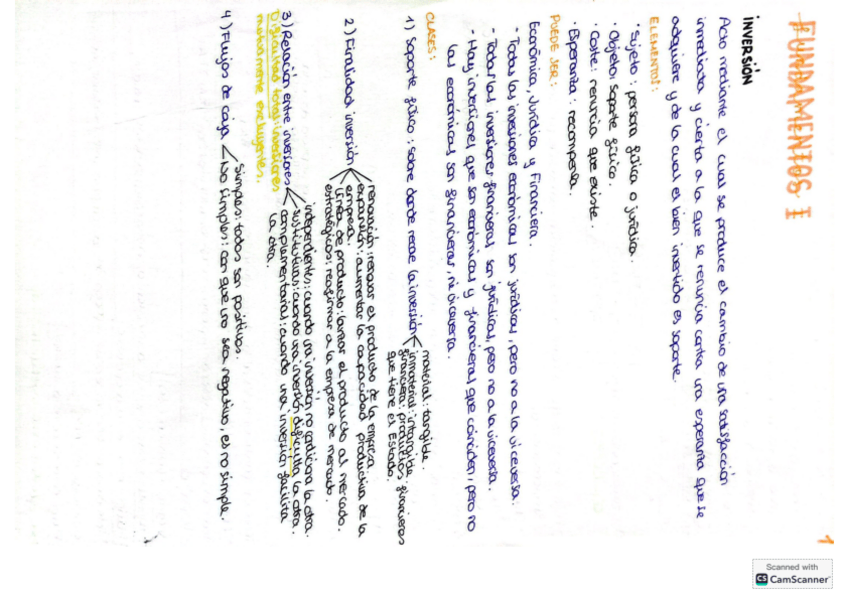 FUNDAMENTOS I
1
INVERSIÓN
Acto mediante el cual se produce el cambio de una satisfacción
inmediata y cierta a la que se renuncia contra una esperanza que se
adquiere y de la cual el bien invertido es soporte.
ELEMENTOS:
· Sujeto: persona física o jurídica.
· Objeto: soporte físico.
· Coste: renuncia que existe.
· Esperanza: recompensa.
PUEDE SER:
Económica, Jurídica y Financiera.
- Todas las inversiones económicas son jurídicas, pero no a la viceversa.
- Todas las inversiones financieras son jurídicas, pero no a la viceversa.
- Hay inversiones que son económicas y financieras que coinciden, pero no
las económicas son financieras, ni viceversa.
CLASES:
1) Soporte físico: sobre donde recae la inversión
material: tangible.
inmaterial: intangible.
financiera: productos financieros
que tiene el Estado.
2) Finalidad inversión
renovación: renovar el producto de la empresa
expansión: aumentar la capacidad productiva de la
empresa.
línea de producto: lanzar el producto al mercado.
estratégicos: reafirmar a la empresa de mercado.
3) Relación entre inversores
independientes: cuando una inversión no condiciona la otra.
sustitutivas: cuando una inversión dificulta la otra.
complementarias: cuando una inversión facilita
la otra.
Dificultad total: inversiones
mutuamente excluyentes.
4) Flujos de caja
simples: todos son positivos.
No simples: con que uno sea negativo, es no simple.
Scanned with
CS CamScanner